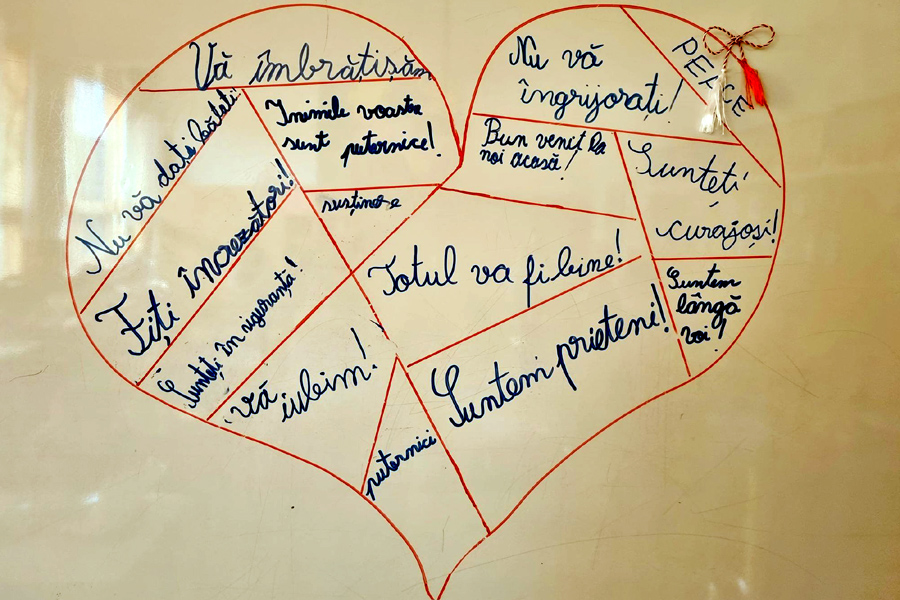 Vă îmbrățișăm
Nu vă dați bătăti!
Inimile voastre
sunt puternice!
Fiți încrezători!
susține-e
Sunteți în siguranță!
vă
iubim!
puternici
Nu vă
îngrijorați!
PEACE
Bun venit la
noi acasă!
Sunteți
curajoși!
Totul va fi bine!
Suntem
lângă
voi!
Suntem prieteni!